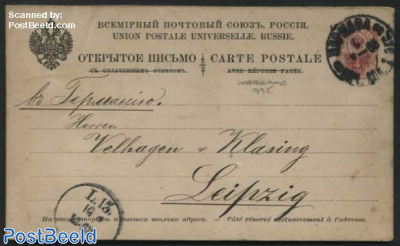 ВСЕМІРНЫЙ ПОЧТОВЫЙ СОЮЗЪ. РОССІЯ.
UNION POSTALE UNIVERSELLE. RUSSIE.
ОТКРЫТОЕ ПИСЬМО CARTE POSTALE
СЪ ОПЛАЧЕННЫМЪ ОТВѢТОМЪ. AVEC RÉPONSE PAYÉE.
въ Германію.
Herren
Velhagen & Klasing
Leipzig
На этой сторонѣ пишется только адресъ. Côté réservé exclusivement à l'adresse.
PostBeeld
PostBeeld
PostBeeld
PostBeeld